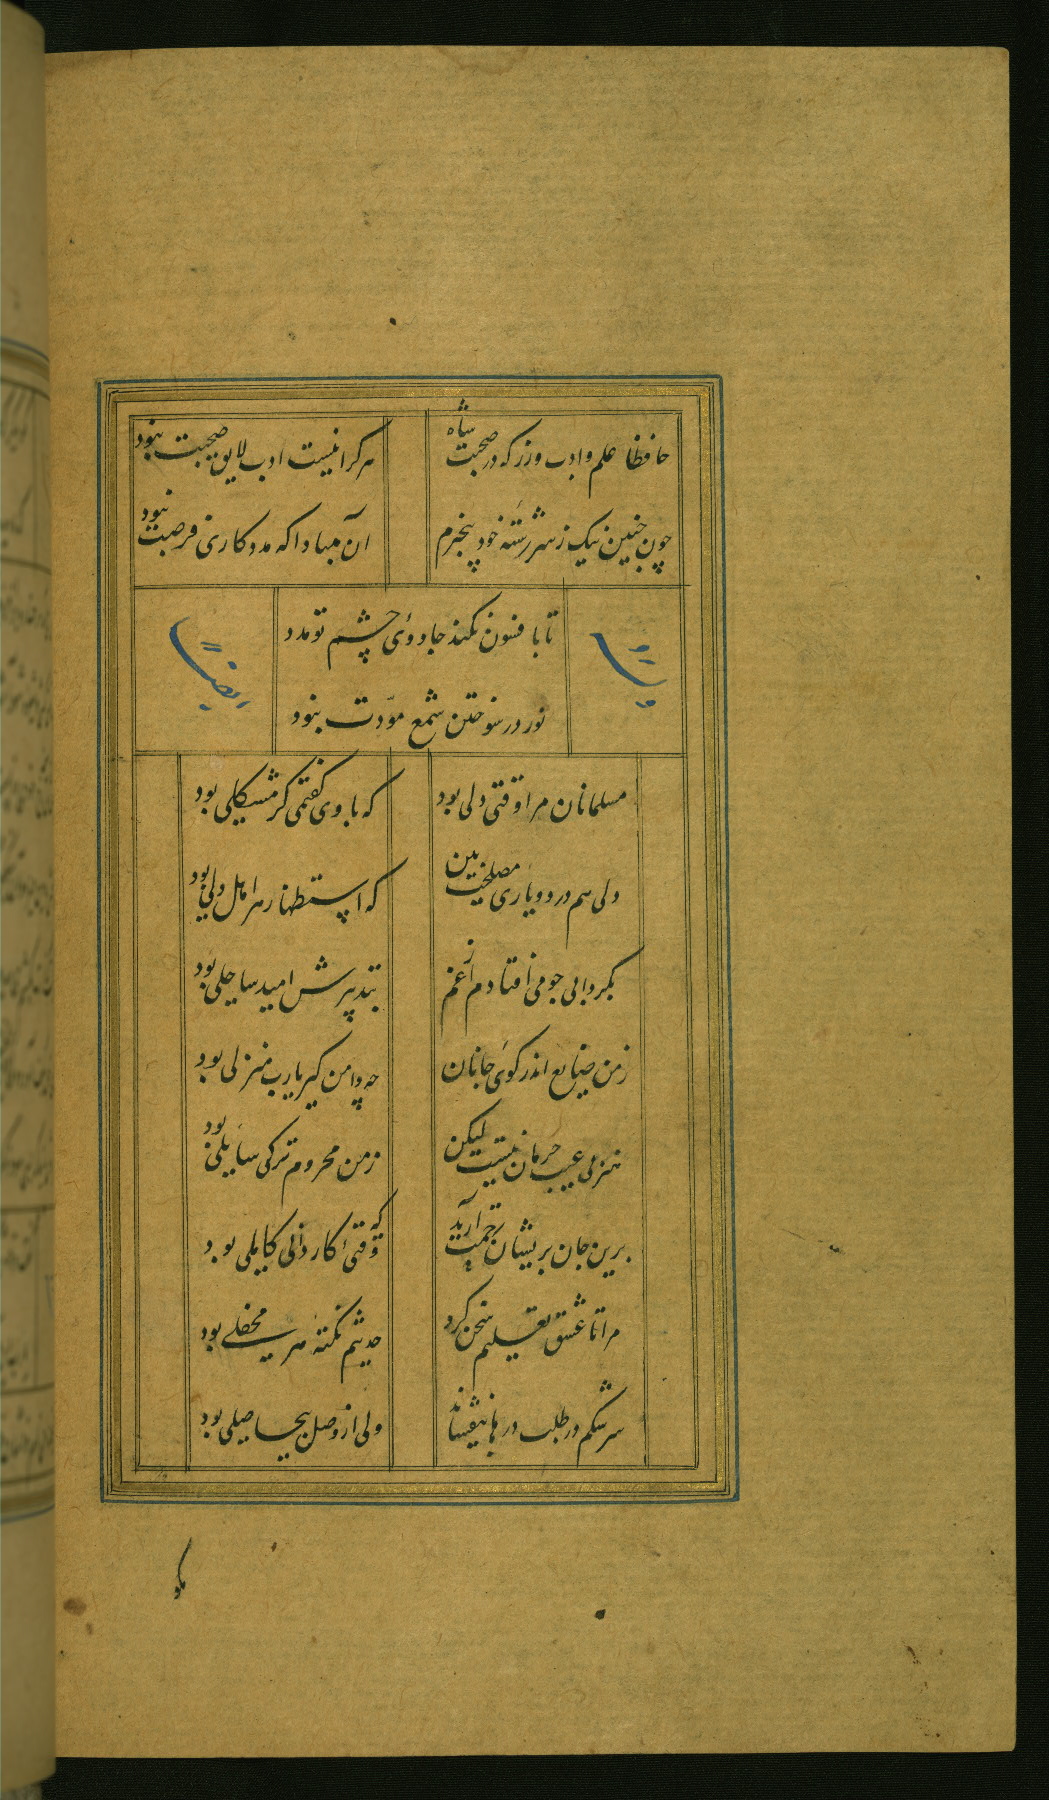 حافظا علم و ادب ورز که در صحبت شاه
هرکرا نیست ادب لایق صحبت نبود
چون چنین نیک ز سررشته خود بیخبرم
آن مبادا که مددکاری فرصت نبود
تا بافسون نکند جادوی چشم تو مدد
نور در سوختن شمع مودت نبود
وله
ایضاً
مسلمانان مرا وقتی دلی بود
که با وی گفتمی گر مشکلی بود
دلی همدرد و یاری مصلحت بین
که استظهار هر اهل دلی بود
بگردابی چو می افتادم از غم
بتدبیرش امید ساحلی بود
ز من ضایع اندر کوی جانان
چه دامن گیر یارب منزلی بود
هنر بی عیب حرمان نیست لیکن
ز من محروم ترکی سایلی بود
برین جان پریشان رحمت آرید
که وقتی کاردانی کاملی بود
مرا تا عشق تعلیم سخن کرد
حدیثم نکته هر محفلی بود
سرشکم در طلب درها بیفشاند
ولی از وصل بیحاصلی بود
مکو